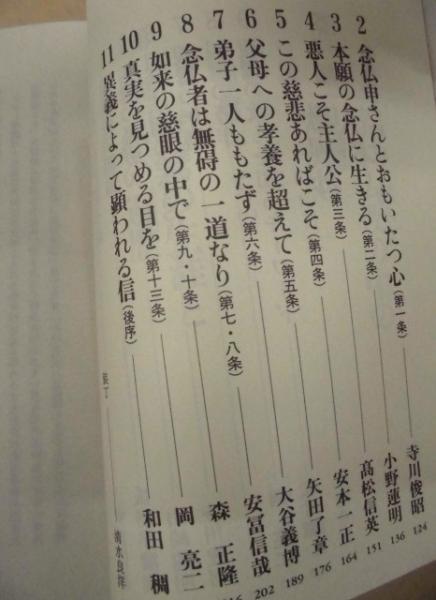 2 念仏申さんとおもいたつ心(第一条) 寺川俊昭 124
3 本願の念仏に生きる(第二条) 小野蓮明 136
4 悪人こそ主人公(第三条) 髙松信英 151
5 この慈悲あればこそ(第四条) 安本一正 164
6 父母への孝養を超えて(第五条) 矢田了章 176
7 弟子一人ももたず(第六条) 大谷義博 189
8 念仏者は無碍の一道なり(第七・八条) 安冨信哉 202
9 如来の慈眼の中で(第九・十条) 森 正隆
10 真実を見つめる目を(第十三条) 岡 亮二
11 異義によって顕われる信(後序) 和田 稠
清水良洋